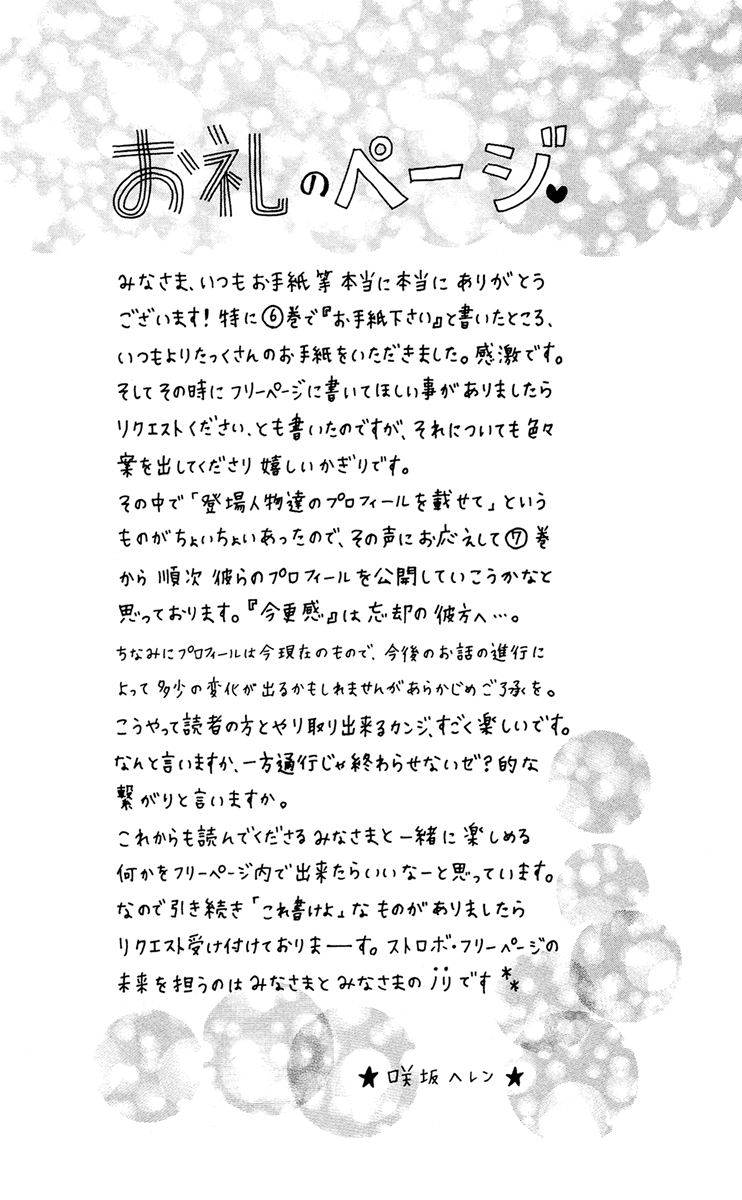 お礼のページ♥
みなさま、いつもお手紙等本当に本当にありがとう
ございます！特に⑥巻で『お手紙下さい』と書いたところ、
いつもよりたっくさんのお手紙をいただきました。感激です。
そしてその時にフリーページに書いてほしい事がありましたら
リクエストください、とも書いたのですが、それについても色々
案を出してくださり嬉しいかぎりです。
その中で「登場人物達のプロフィールを載せて」という
ものがちょいちょいあったので、その声にお応えして⑦巻
から順次彼らのプロフィールを公開していこうかなと
思っております。『今更感』は忘却の彼方へ…。
ちなみにプロフィールは今現在のもので、今後のお話の進行に
よって多少の変化が出るかもしれませんがあらかじめご了承を。
こうやって読者の方とやり取り出来るカンジ、すごく楽しいです。
なんと言いますか、一方通行じゃ終わらせないゼ？的な
繋がりと言いますか。
これからも読んでくださるみなさまと一緒に楽しめる
何かをフリーページ内で出来たらいいなーと思っています。
なので引き続き「これ書けよ」なものがありましたら
リクエスト受け付けておりまーす。ストロボ・フリーページの
未来を担うのはみなさまとみなさまのです
★咲坂ヘレン★